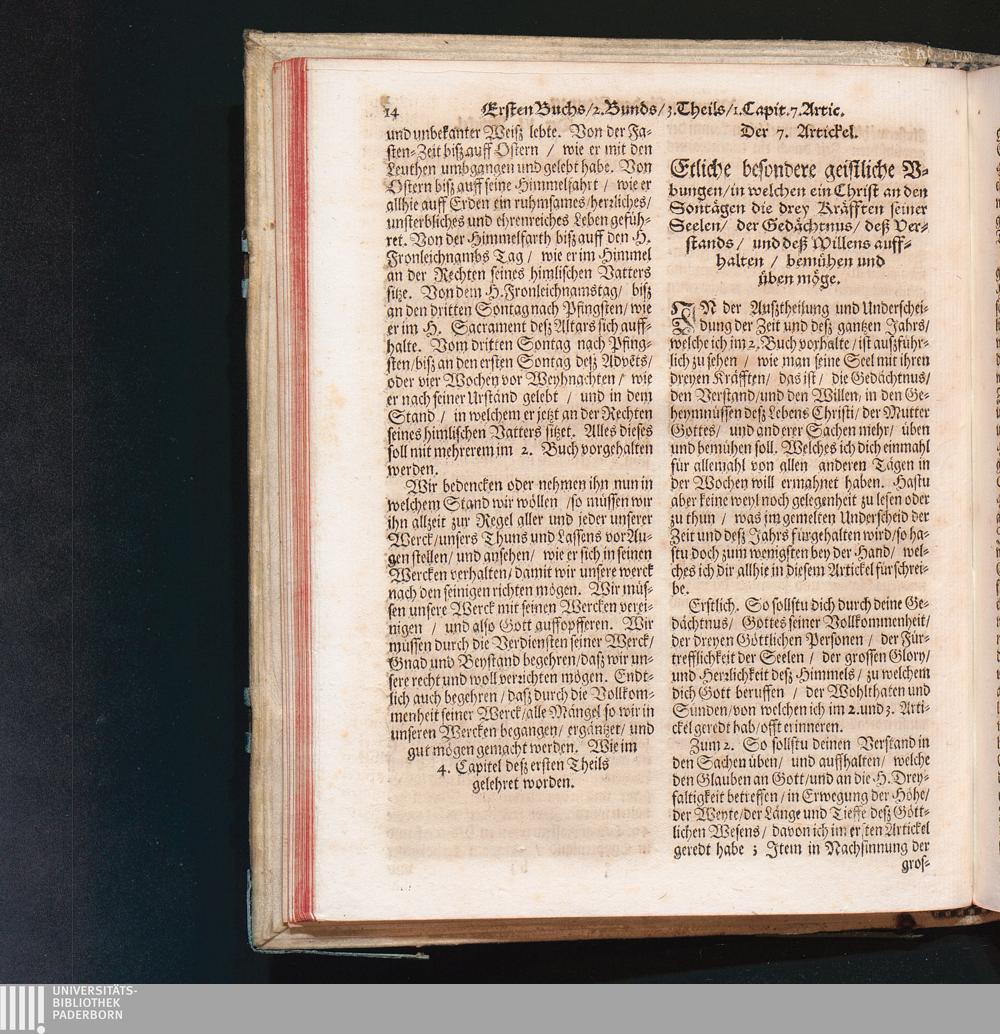 14
Ersten Buchs/2.Bunds/3.Theils/1.Capit.7.Artic.
und unbekanter Weiß lebte. Von der Fa-
sten-Zeit biß auff Ostern / wie er mit den
Leuthen umbgangen und gelebt habe. Von
Ostern biß auff seine Himmelfahrt / wie er
allhie auff Erden ein ruhmsames/herzliches/
unsterbliches und ehrenreiches Leben gefüh-
ret. Von der Himmelfarth biß auff den H.
Fronleichnambs Tag / wie er im Himmel
an der Rechten seines himlischen Vatters
sitze. Von dem H.Fronleichnamstag/ biß
an den dritten Sontag nach Pfingsten/wie
er im H. Sacrament deß Altars sich auff-
halte. Vom dritten Sontag nach Pfing-
sten/biß an den ersten Sontag deß Advēts/
oder vier Wochen vor Weyhnachten / wie
er nach seiner Urständ gelebt / und in dem
Stand / in welchem er jetzt an der Rechten
seines himlischen Vatters sitzet. Alles dieses
soll mit mehrerem im 2. Buch vorgehalten
werden.
Wir bedencken oder nehmen ihn nun in
welchem Stand wir wöllen /so müssen wir
ihn allzeit zur Regel aller und jeder unserer
Werck/unsers Thuns und Lassens vor Au-
gen stellen/ und ansehen/ wie er sich in seinen
Wercken verhalten/damit wir unsere werck
nach den seinigen richten mögen. Wir müs-
sen unsere Werck mit seinen Wercken verei-
nigen / und also Gott auffopfferen. Wir
müssen durch die Verdiensten seiner Werck/
Gnad und Beystand begehren/daß wir un-
sere recht und woll verzichten mögen. Endt-
lich auch begehren / daß durch die Vollkom-
menheit seiner Werck/alle Mängel so wir in
unseren Wercken begangen/ ergäntzet/ und
gut mögen gemacht werden. Wie im
4. Capitel deß ersten Theils
gelehret worden.
Der 7. Artickel.
Etliche besondere geistliche V-
bungen/in welchen ein Christ an den
Sontägen die drey Kräfften seiner
Seelen/ der Gedächtnus/ deß Ver-
stands/ und deß Willens auff-
halten / bemühen und
üben möge.
IN der Außtheilung und Underschei-
dung der Zeit und deß gantzen Jahrs/
welche ich im 2.Buch vorhalte/ist außführ-
lich zu sehen / wie man seine Seel mit ihren
dreyen Kräfften/ das ist/ die Gedächtnus/
den Verstand/und den Willen/ in den Ge-
heymnüssen deß Lebens Christi/ der Mutter
Gottes/ und anderer Sachen mehr/ üben
und bemühen soll. Welches ich dich einmahl
für allemahl von allen anderen Tägen in
der Wochen will ermahnet haben. Hastu
aber keine weyl noch gelegenheit zu lesen oder
zu thun / was im gemelten Underscheid der
Zeit und deß Jahrs fürgehalten wird/so ha-
stu doch zum wenigsten bey der Hand/ wel-
ches ich dir allhie in diesem Artickel fürschrei-
be.
Erstlich. So sollstu dich durch deine Ge-
dächtnus/ Gottes seiner Vollkommenheit/
der dreyen Göttlichen Personen / der Für-
trefflichkeit der Seelen / der grossen Glory/
und Herzlichkeit deß Himmels/ zu welchem
dich Gott beruffen / der Wohlthaten und
Sünden/von welchen ich im 2.und 3. Arti-
ckel geredt hab/offt erinneren.
Zum 2. So sollstu deinen Verstand in
den Sachen üben/ und auffhalten/ welche
den Glauben an Gott/und an die H.Drey-
faltigkeit betreffen/in Erwegung der Höhe/
der Weyte/der Länge und Tieffe deß Gött-
lichen Wesens/ davon ich im ersten Artickel
geredt habe ; Item in Nachsinnung der
gros-
UNIVERSITÄTS-
BIBLIOTHEK
PADERBORN